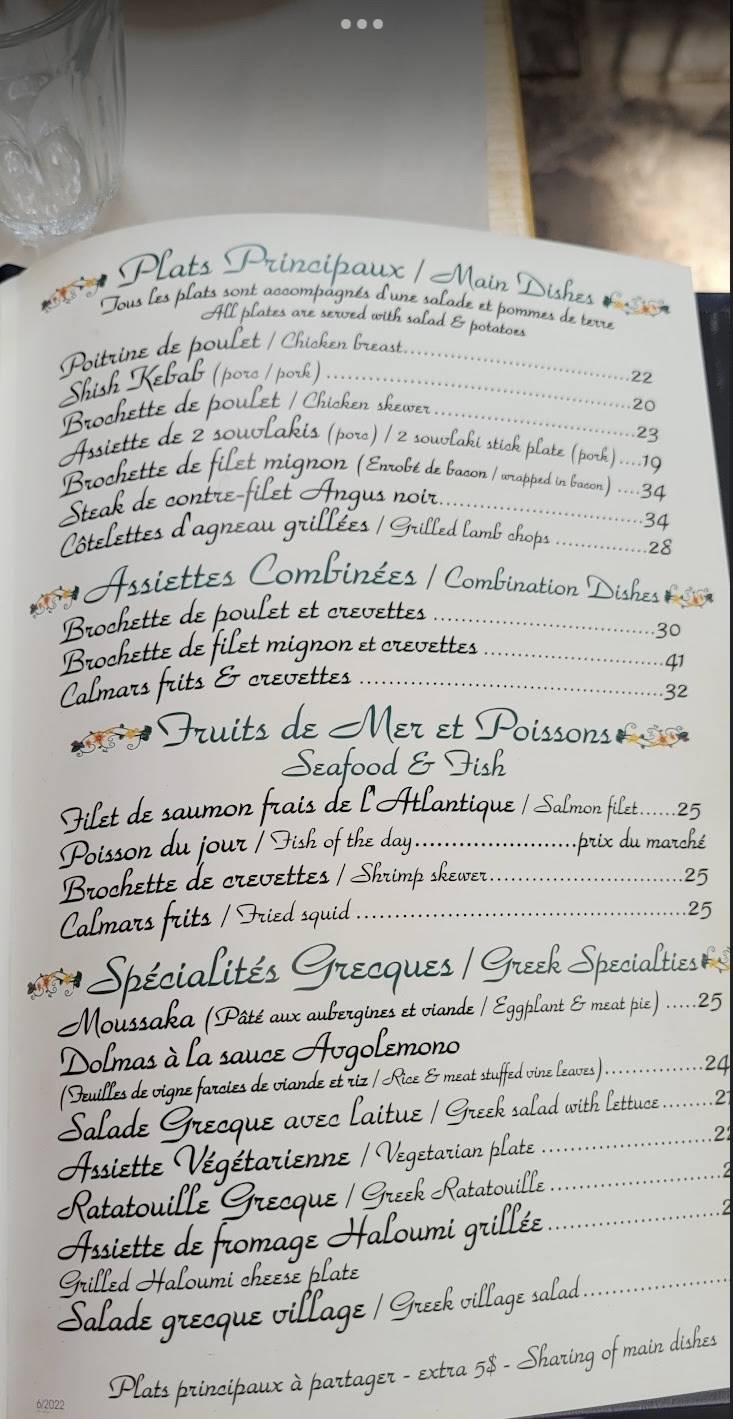 Plats Principaux / Main Dishes
Tous les plats sont accompagnés d'une salade et pommes de terre
All plates are served with salad & potatoes
Poitrine de poulet / Chicken breast..........22
Shish Kebab (porc / pork)..........20
Brochette de poulet / Chicken skewer..........23
Assiette de 2 souvlakis (porc) / 2 souvlaki stick plate (pork)....19
Brochette de filet mignon (Enrobé de bacon / wrapped in bacon)....34
Steak de contre-filet Angus noir..........34
Côtelettes d'agneau grillées / Grilled lamb chops..........28
Assiettes Combinées / Combination Dishes
Brochette de poulet et crevettes..........30
Brochette de filet mignon et crevettes..........41
Calmars frits & crevettes..........32
Fruits de Mer et Poissons
Seafood & Fish
Filet de saumon frais de l'Atlantique / Salmon filet......25
Poisson du jour / Fish of the day..........prix du marché
Brochette de crevettes / Shrimp skewer..........25
Calmars frits / Fried squid..........25
Spécialités Grecques / Greek Specialties
Moussaka (Pâté aux aubergines et viande / Eggplant & meat pie).....25
Dolmas à la sauce Avgolemono
(Feuilles de vigne farcies de viande et riz / Rice & meat stuffed vine leaves)..........24
Salade Grecque avec laitue / Greek salad with lettuce.......2
Assiette Végétarienne / Vegetarian plate..........2
Ratatouille Grecque / Greek Ratatouille..........2
Assiette de fromage Haloumi grillée..........2
Grilled Haloumi cheese plate
Salade grecque village / Greek village salad..........
Plats principaux à partager - extra 5$ - Sharing of main dishes
6/2022